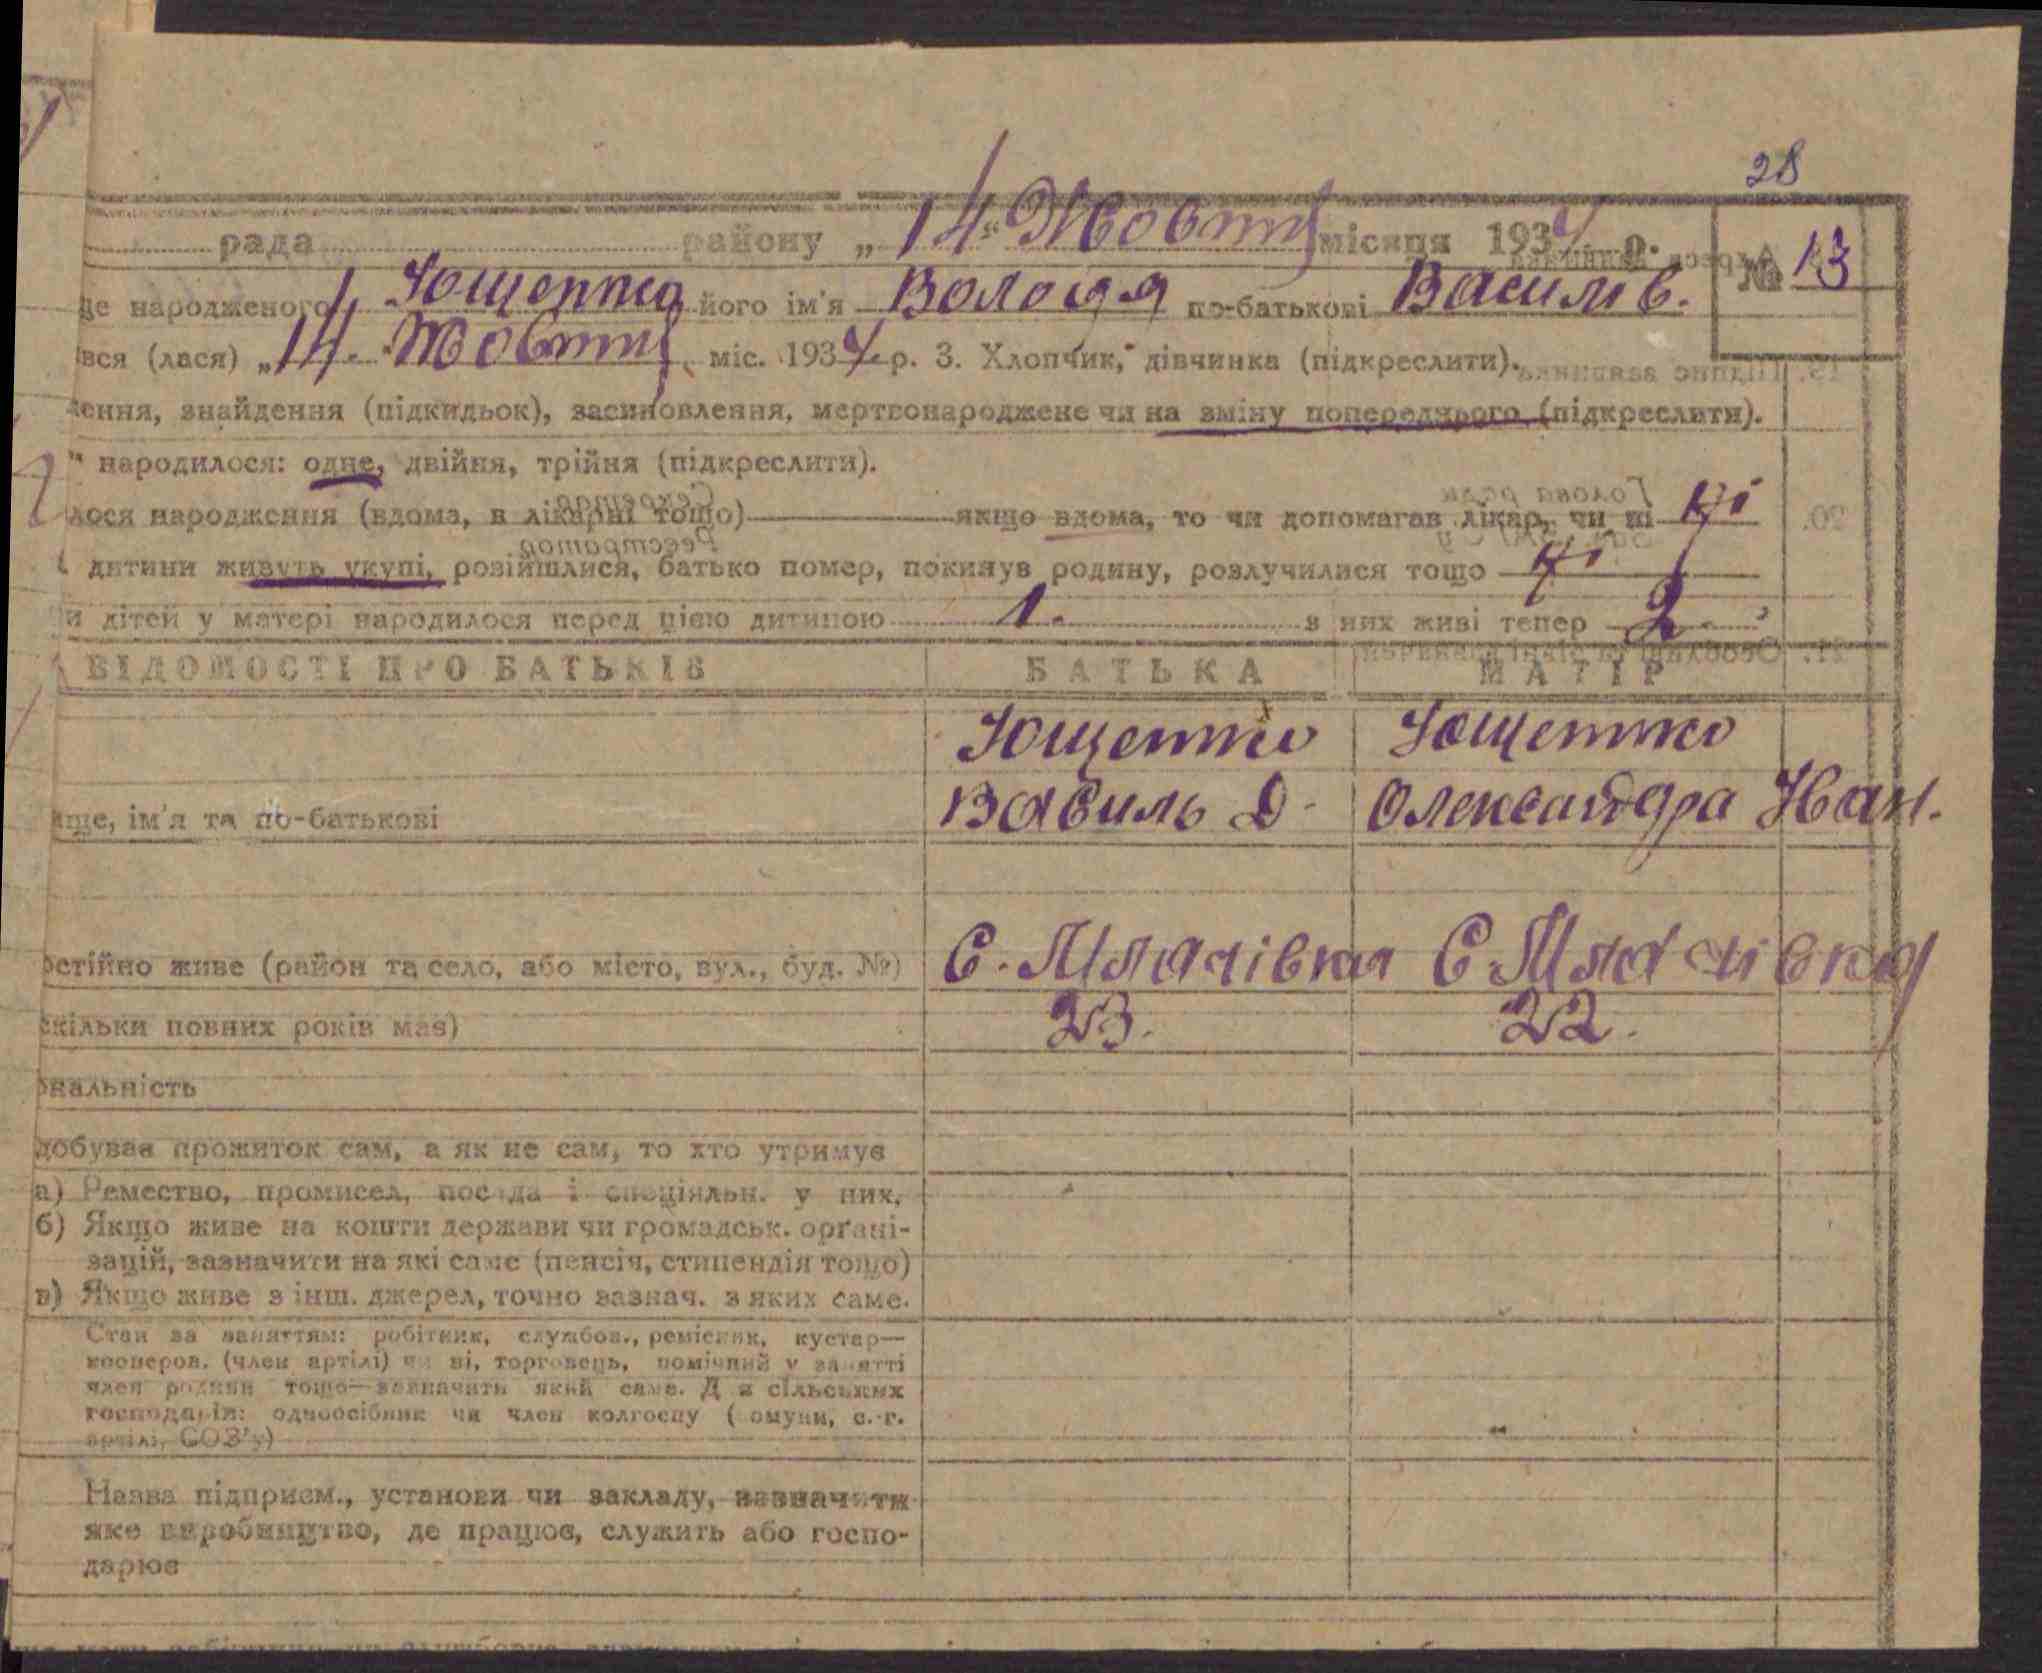 28
рада району „14“ Жовтня місяця 193 р. № 13
це народженого Ющенко його ім'я Володя по-батькові Василів.
вся (лася) „14“ Жовтня міс. 193 р. 3. Хлопчик, дівчинка (підкреслити).
лення, знайдення (підкидьок), засиновлення, мертвонароджене чи на зміну попереднього (підкреслити).
" народилося: одне, двійня, трійня (підкреслити).
лося народження (вдома, в лікарні тощо) якщо вдома, то чи допомагав лікар, чи ні ні
дитини живуть укупі, розійшлися, батько помер, покинув родину, розлучилися тощо ні
и дітей у матері народилося перед цією дитиною 1. з них живі тепер 2.
ВІДОМОСТІ ПРО БАТЬКІВ БАТЬКА МАТІР
Ющенко Ющенко
ище, ім'я та по-батькові Василь Д. Олександра Іван.
остійно живе (район та село, або місто, вул., буд. №) С. Млачівка С. Млачівка
скільки повних років має) 23. 22.
ональність
добуває прожиток сам, а як не сам, то хто утримує
а) Ремество, промисел, посада і спеціяльн. у них,
б) Якщо живе на кошти держави чи громадськ. органі-
зацій, зазначити на які саме (пенсія, стипендія тощо)
в) Якщо живе з інш. джерел, точно зазнач. з яких саме.
Стан за заняттям: робітник, службов., ремісник, кустар—
кооперов. (член артілі) чи ні, торговець, помічний у занятті
член родини тощо—зазначити який саме. Для сільських
господарів: одноосібник чи член колгоспу (комуни, с.-г.
артілі, СОЗ'у)
Назва підприєм., установи чи закладу, зазначити
яке виробництво, де працює, служить або госпо-
дарює